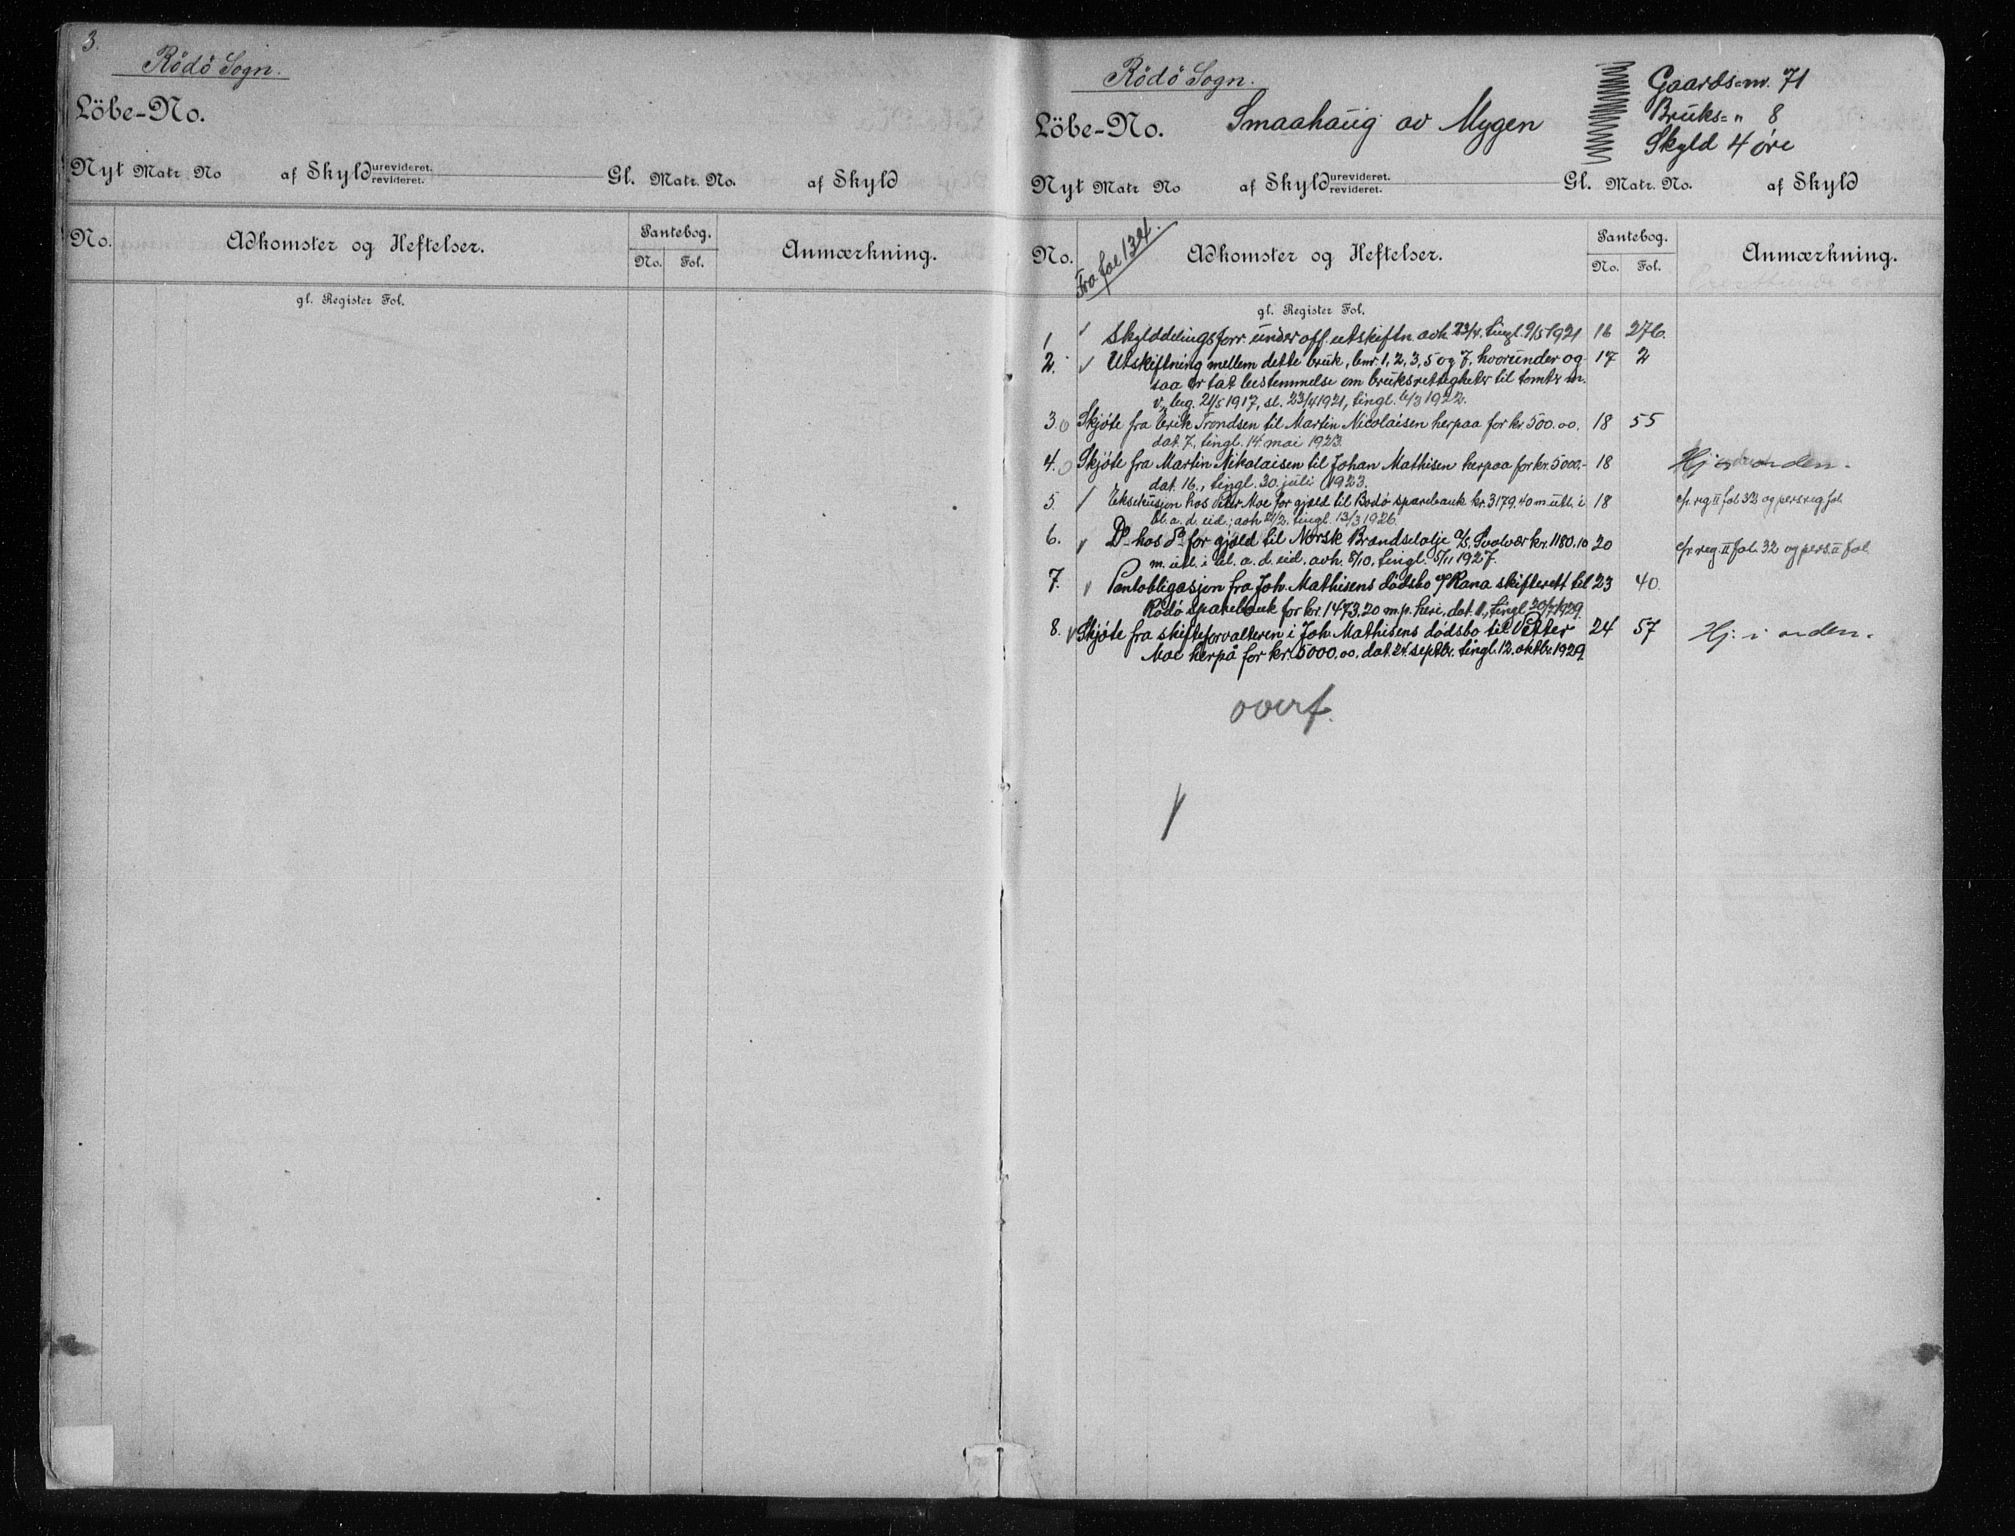 3.
Rödö Sogn.
Löbe-No.
Nyt Matr. No af Skyld urevideret. revideret. Gl. Matr. No. af Skyld
No. Adkomster og Heftelser. Pantebog. No. Fol. Anmærkning.
gl. Register Fol.
Rödö Sogn.
Gaards-nr. 71
Löbe-No. Smaahaug av Mygen
Bruks- " 8
Skyld 4 øre
Nyt Matr. No af Skyld urevideret. revideret. Gl. Matr. No. af Skyld
Fra fol 134.
No. Adkomster og Heftelser. Pantebog. No. Fol. Anmærkning.
gl. Register Fol.
1 Skylddelingsforr. under off. utskiftn. avh. 23/4. tingl. 9/5 1921 16 276.
2. Utskiftning mellem dette bruk, bnr. 1, 2, 3, 5 og 7, hvorunder og- 17 2
saa er tat bestemmelse om bruksrettigheter til tomter m.
v., beg. 21/5 1917, sl. 23/4 1921, tingl. 6/3 1922.
3. o Skjøte fra Erik Trondsen til Martin Nicolaisen herpaa for kr. 500.00. 18 55
dat. 7, tingl. 14 mai 1923.
4. o Skjøte fra Martin Nikolaisen til Johan Mathisen herpaa for kr. 5000.- 18 Hj. orden.
dat. 16., tingl. 30. juli 1923.
5. Eksekusjon hos Peter Moe for gjæld til Bodø sparebank kr. 3179.40 m. utl. i 18 cfr. reg II fol. 32 og persreg fol.
bl. a. d. eid.; avh /2. tingl. 13/3 1926.
6. Do hos do for gjæld til Norsk Brændselolje A/S, Svolvær kr. 1180.10 20 cfr. reg. II fol. 32 og pers. II fol.
m. utl. i bl. a. d. eid. avh. 8/10, tingl. 5/11 1927.
7. Pantobligasjon fra Joh. Mathisens dødsbo v/ Rana skifterett til 23 40.
Rødø sparebank for kr. 1473,20 m.p. heri, dat. 11., tingl. 20/ 1929.
8. Skjøte fra skifteforvalteren i Joh. Mathisens dødsbo til Petter 24 57 Hj. i orden.
Moe herpå for kr. 5000.00. dat. 24. septbr. tingl. 12. oktbr. 1929.
overf.